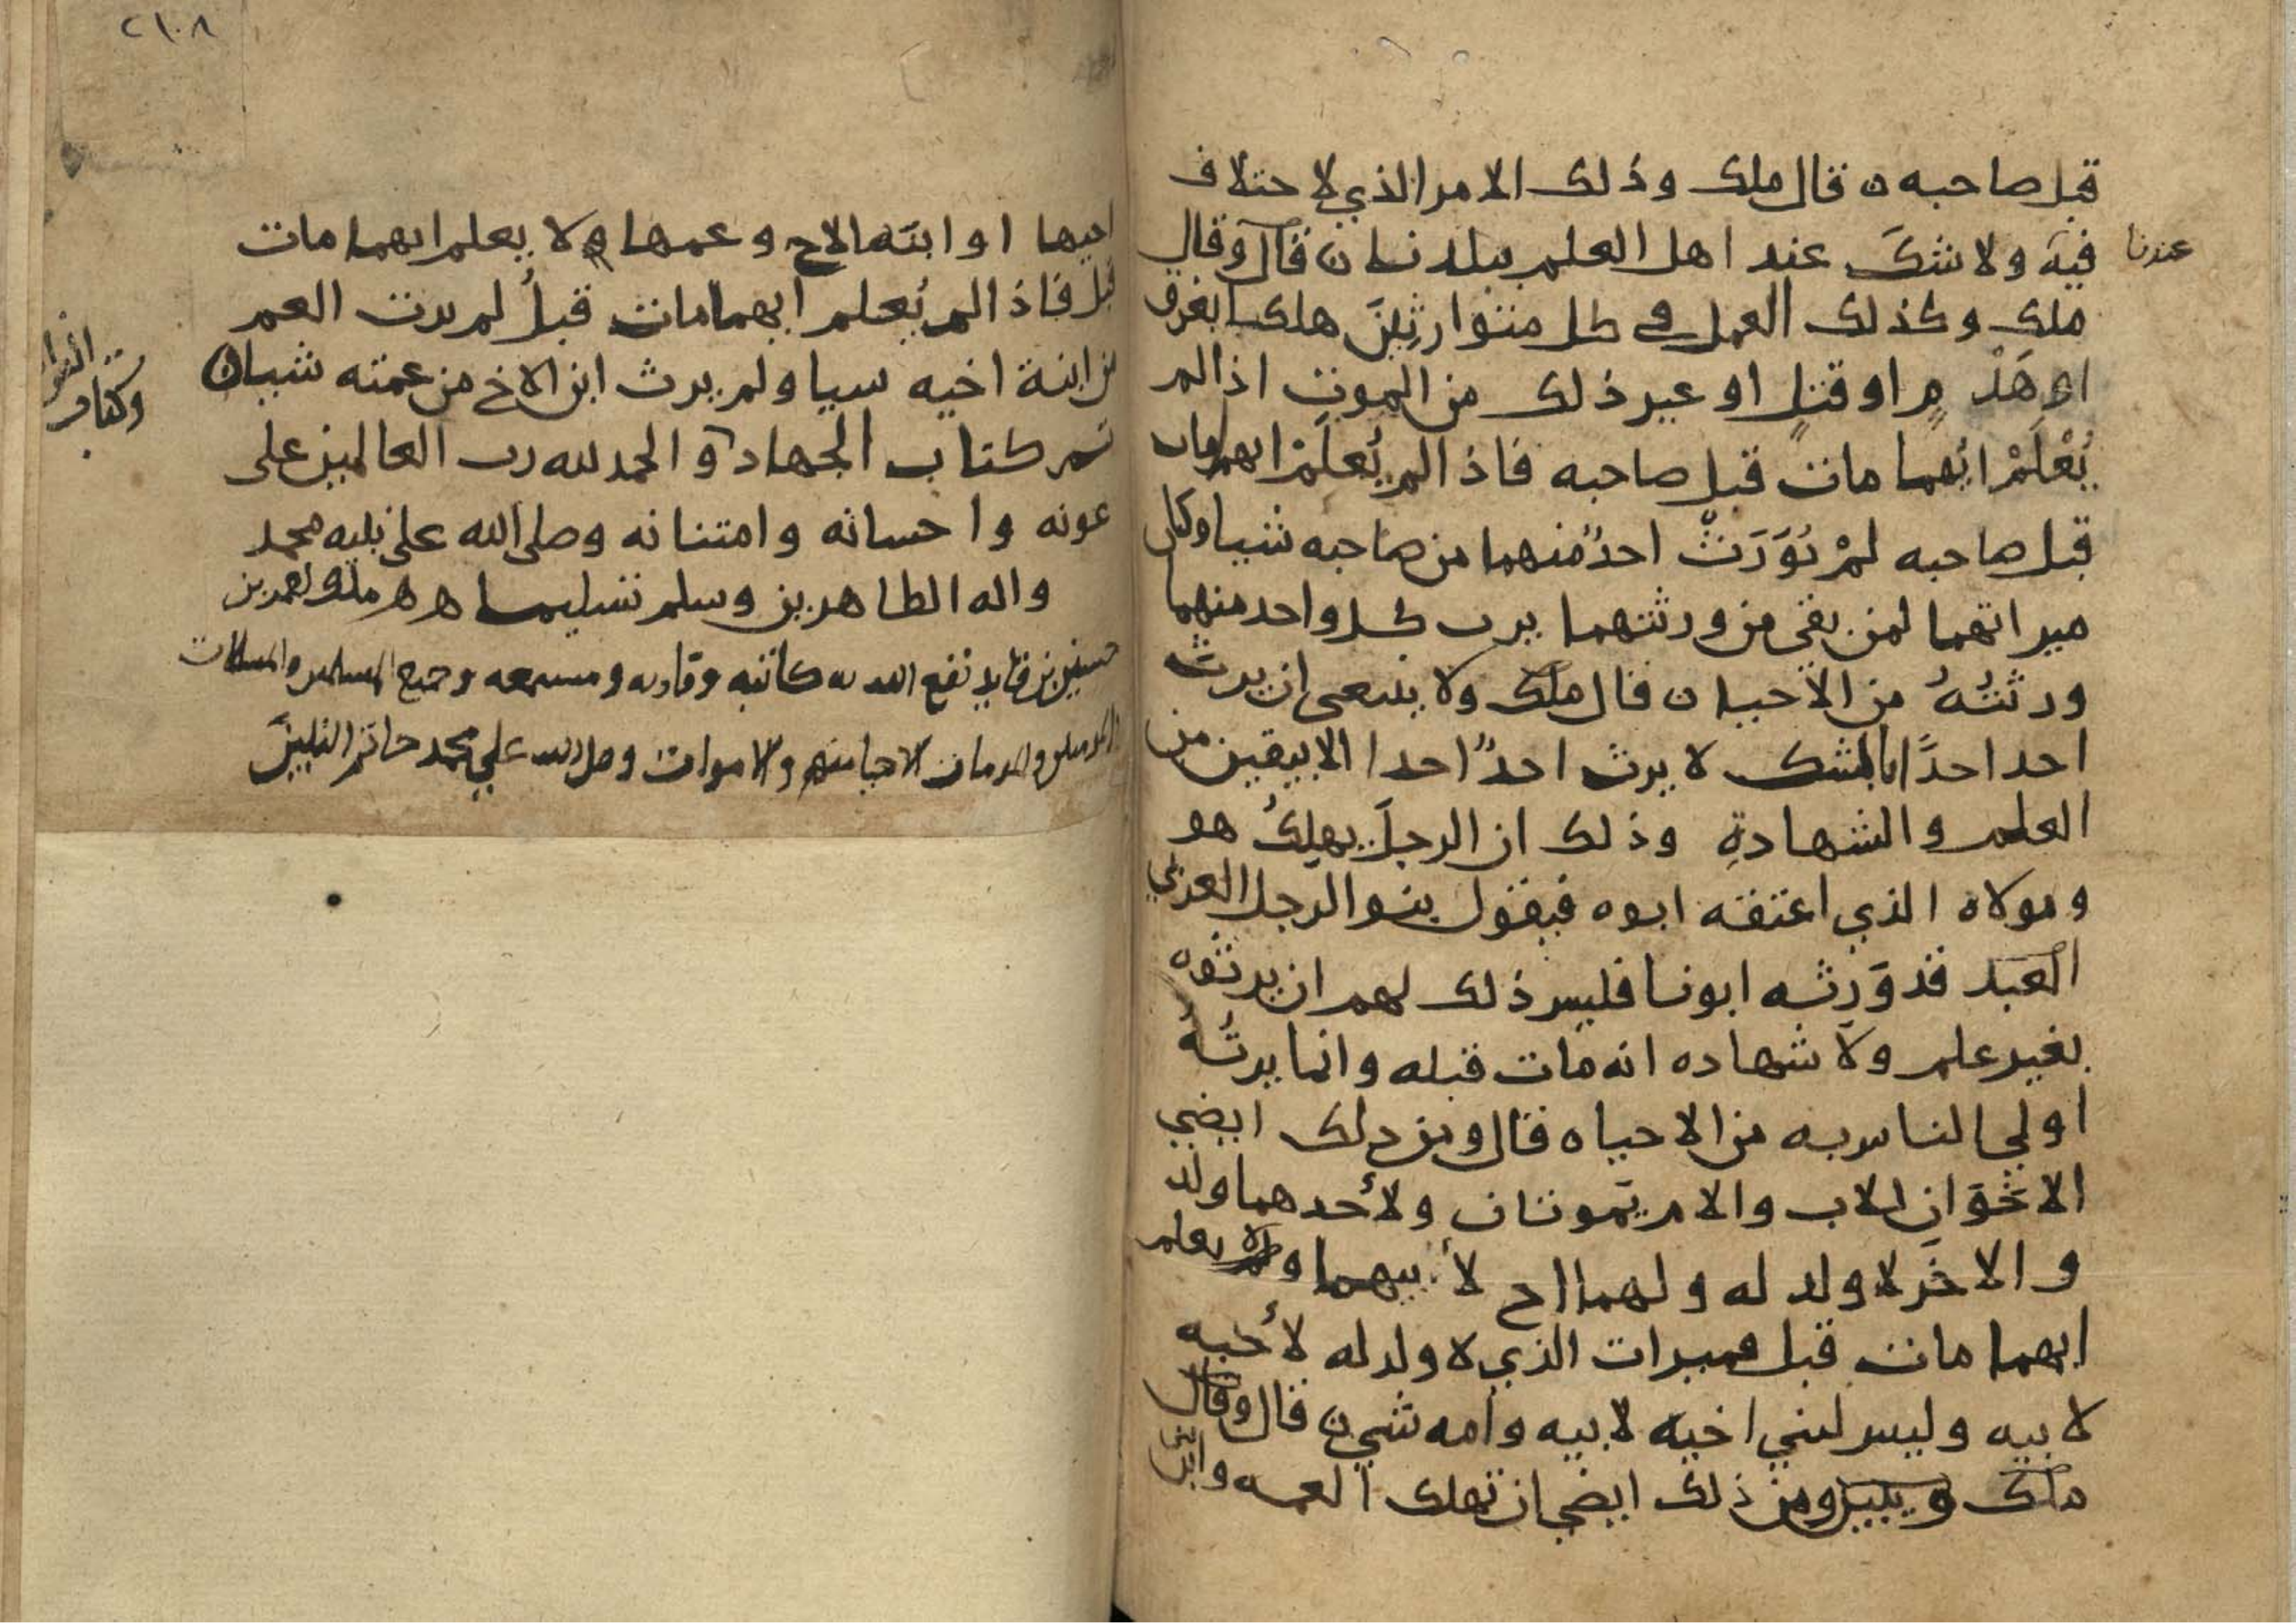 قبل صاحبه ن قال ملك وذلك الامر الذي لا حتلاف
فيه ولا شكَ عند اهل العلم ببلدنا ن قال وقال
عندنا
ملك وكذلك العمل في كل متوارثِيَن هلكا بغرق
او هَدْمٍ او قتلٍ او غير ذلك من الموتِ اذا لم
يُعْلَمْ ايُهما مات قبل صاحبه فاذا لم يُعلَمْ ايهما مات
قبل صاحبه لمْ يُوَرَثْ احدٌ منهما من صاحبه شيا وكان
ميراثهما لمن بقي من ورثتهما يرث كل واحد منهما
ورثتُهُ من الاحيا ن قال ملك ولا ينبغي ان يرث
احد احدًا بالشك لا يرث احدٌ احدا الا بيقين من
العلم والشهادةِ وذلك ان الرجلَ يهلِكُ هو
ومولاه الذي اعتقه ابوه فيقول بنو الرجل العربي
العبد قد وَرِثه ابونا فليس ذلك لهم ان يرثوه
بغير علم ولا شهاده انه مات قبله وانما يرثُهُ
اولي الناس به من الاحياه قال ومن ذلك ايضي
الاخَوَانِ للاب والام يَموتان ولأحدهما ولد
والاخَر لا ولد له ولهما اح لأبيهما ولا يعلم
ايهما مات قبل فميرات الذي لا ولد له لأخيه
لابيه وليس لبني اخيه لابيه وامه شي ن قال وقال
ملك ومن ذلك ايضي ان تهلك العمه وابن
اخيها او ابنَه الاح وعمها ولا يعلم ايهما مات
قبل فاذا لم يُعلم ايهما مات قبلُ لم يرث العم
من ابنة اخيه سيا ولم يرث ابن الاخ من عمته شيا ن
تم كتاب الجهاد والحمد لله رب العالمين على
عونه واحسانه وامتنانه وصلى الله على نبيه محمد
واله الطاهرين وسلم تسليما ه ه
نفع الله به كاتبه وقاريه ومسمعه وجميع المسلمين والمسلمات
والمومنين والمومنات الاحيا منهم والاموات وصلى الله علي محمد خاتم النبيينَ
٢١٠٨